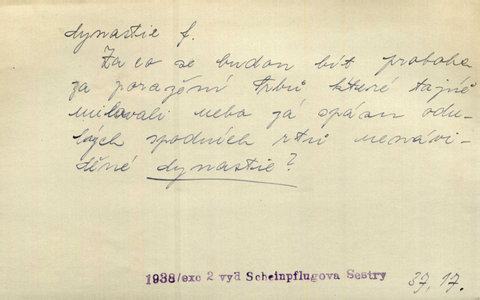 dynastie f.
Za co se budou bít proboha
za poražení Srbů které tajně
milovali nebo za spásu odu-
lých spodních rtů nenávi-
děné dynastie?
1938/exc 2 vyd Scheinpflugova Sestry
37, 17.